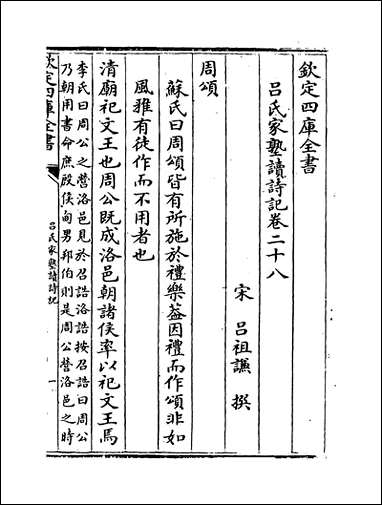 欽定四庫全書
吕氏家塾讀詩記卷二十八
宋 吕祖謙 撰
周頌
蘇氏曰周頌皆有所施於禮樂葢因禮而作頌非如
風雅有徒作而不用者也
清廟祀文王也周公既成洛邑朝諸侯率以祀文王焉
李氏曰周公之營洛邑見於召誥洛誥按召誥曰周公
乃朝用書命庶殷侯甸男邦伯則是周公營洛邑之時
欽定四庫全書
吕氏家塾讀詩記
一